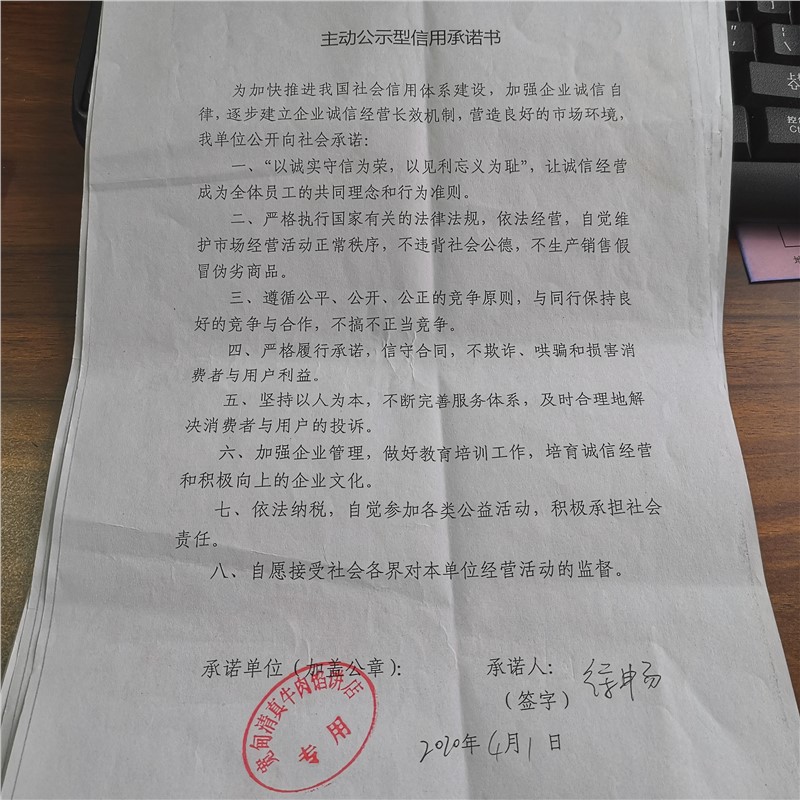 主动公示型信用承诺书
为加快推进我国社会信用体系建设，加强企业诚信自
律，逐步建立企业诚信经营长效机制，营造良好的市场环境，
我单位公开向社会承诺：
一、“以诚实守信为荣，以见利忘义为耻”，让诚信经营
成为全体员工的共同理念和行为准则。
二、严格执行国家有关的法律法规，依法经营，自觉维
护市场经营活动正常秩序，不违背社会公德，不生产销售假
冒伪劣商品。
三、遵循公平、公开、公正的竞争原则，与同行保持良
好的竞争与合作，不搞不正当竞争。
四、严格履行承诺，信守合同，不欺诈、哄骗和损害消
费者与用户利益。
五、坚持以人为本，不断完善服务体系，及时合理地解
决消费者与用户的投诉。
六、加强企业管理，做好教育培训工作，培育诚信经营
和积极向上的企业文化。
七、依法纳税，自觉参加各类公益活动，积极承担社会
责任。
八、自愿接受社会各界对本单位经营活动的监督。
承诺单位（加盖公章）：
承诺人：
（签字）
2020年4月1日
宽甸清真牛肉馅饼店
专用